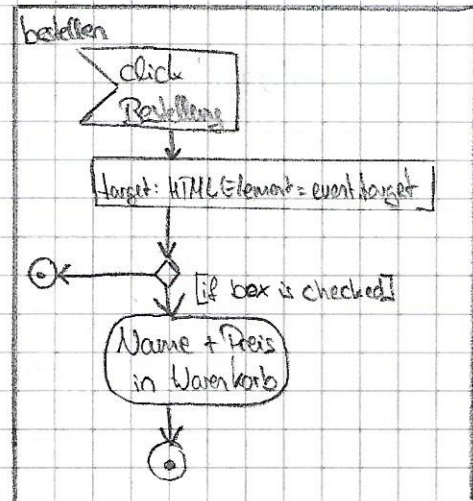 bestellen
click
Bestellung
target: HTMLElement = event.target
[if box is checked]
Name + Preis
in Warenkorb